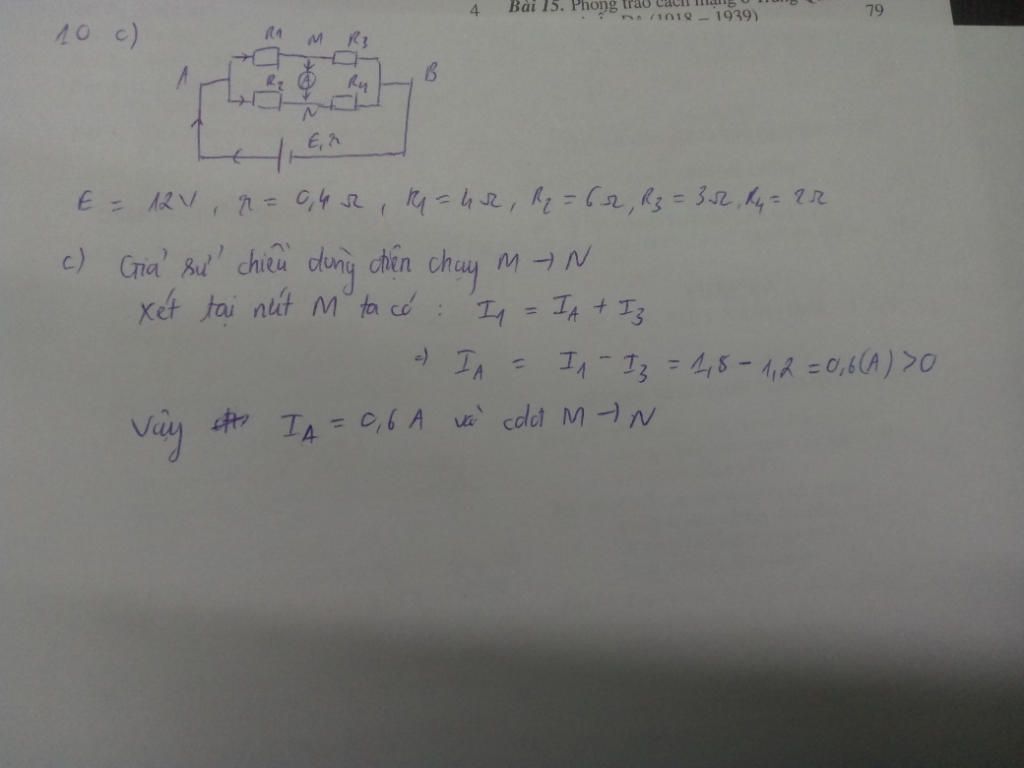 4 Bài 15. Phong trào cách mạng ở Trung 79
(1918 – 1939)
10 c)
R1 M R3
A R2 A R4 B
N
E, r
E = 12V, r = 0,4 Ω, R1 = 4Ω, R2 = 6Ω, R3 = 3Ω, R4 = 2Ω
c) Giả sử chiều dòng điện chạy M → N
Xét tại nút M ta có : I1 = IA + I3
=> IA = I1 - I3 = 1,8 - 1,2 = 0,6(A) > 0
Vậy IA = 0,6 A và cdđ M → N